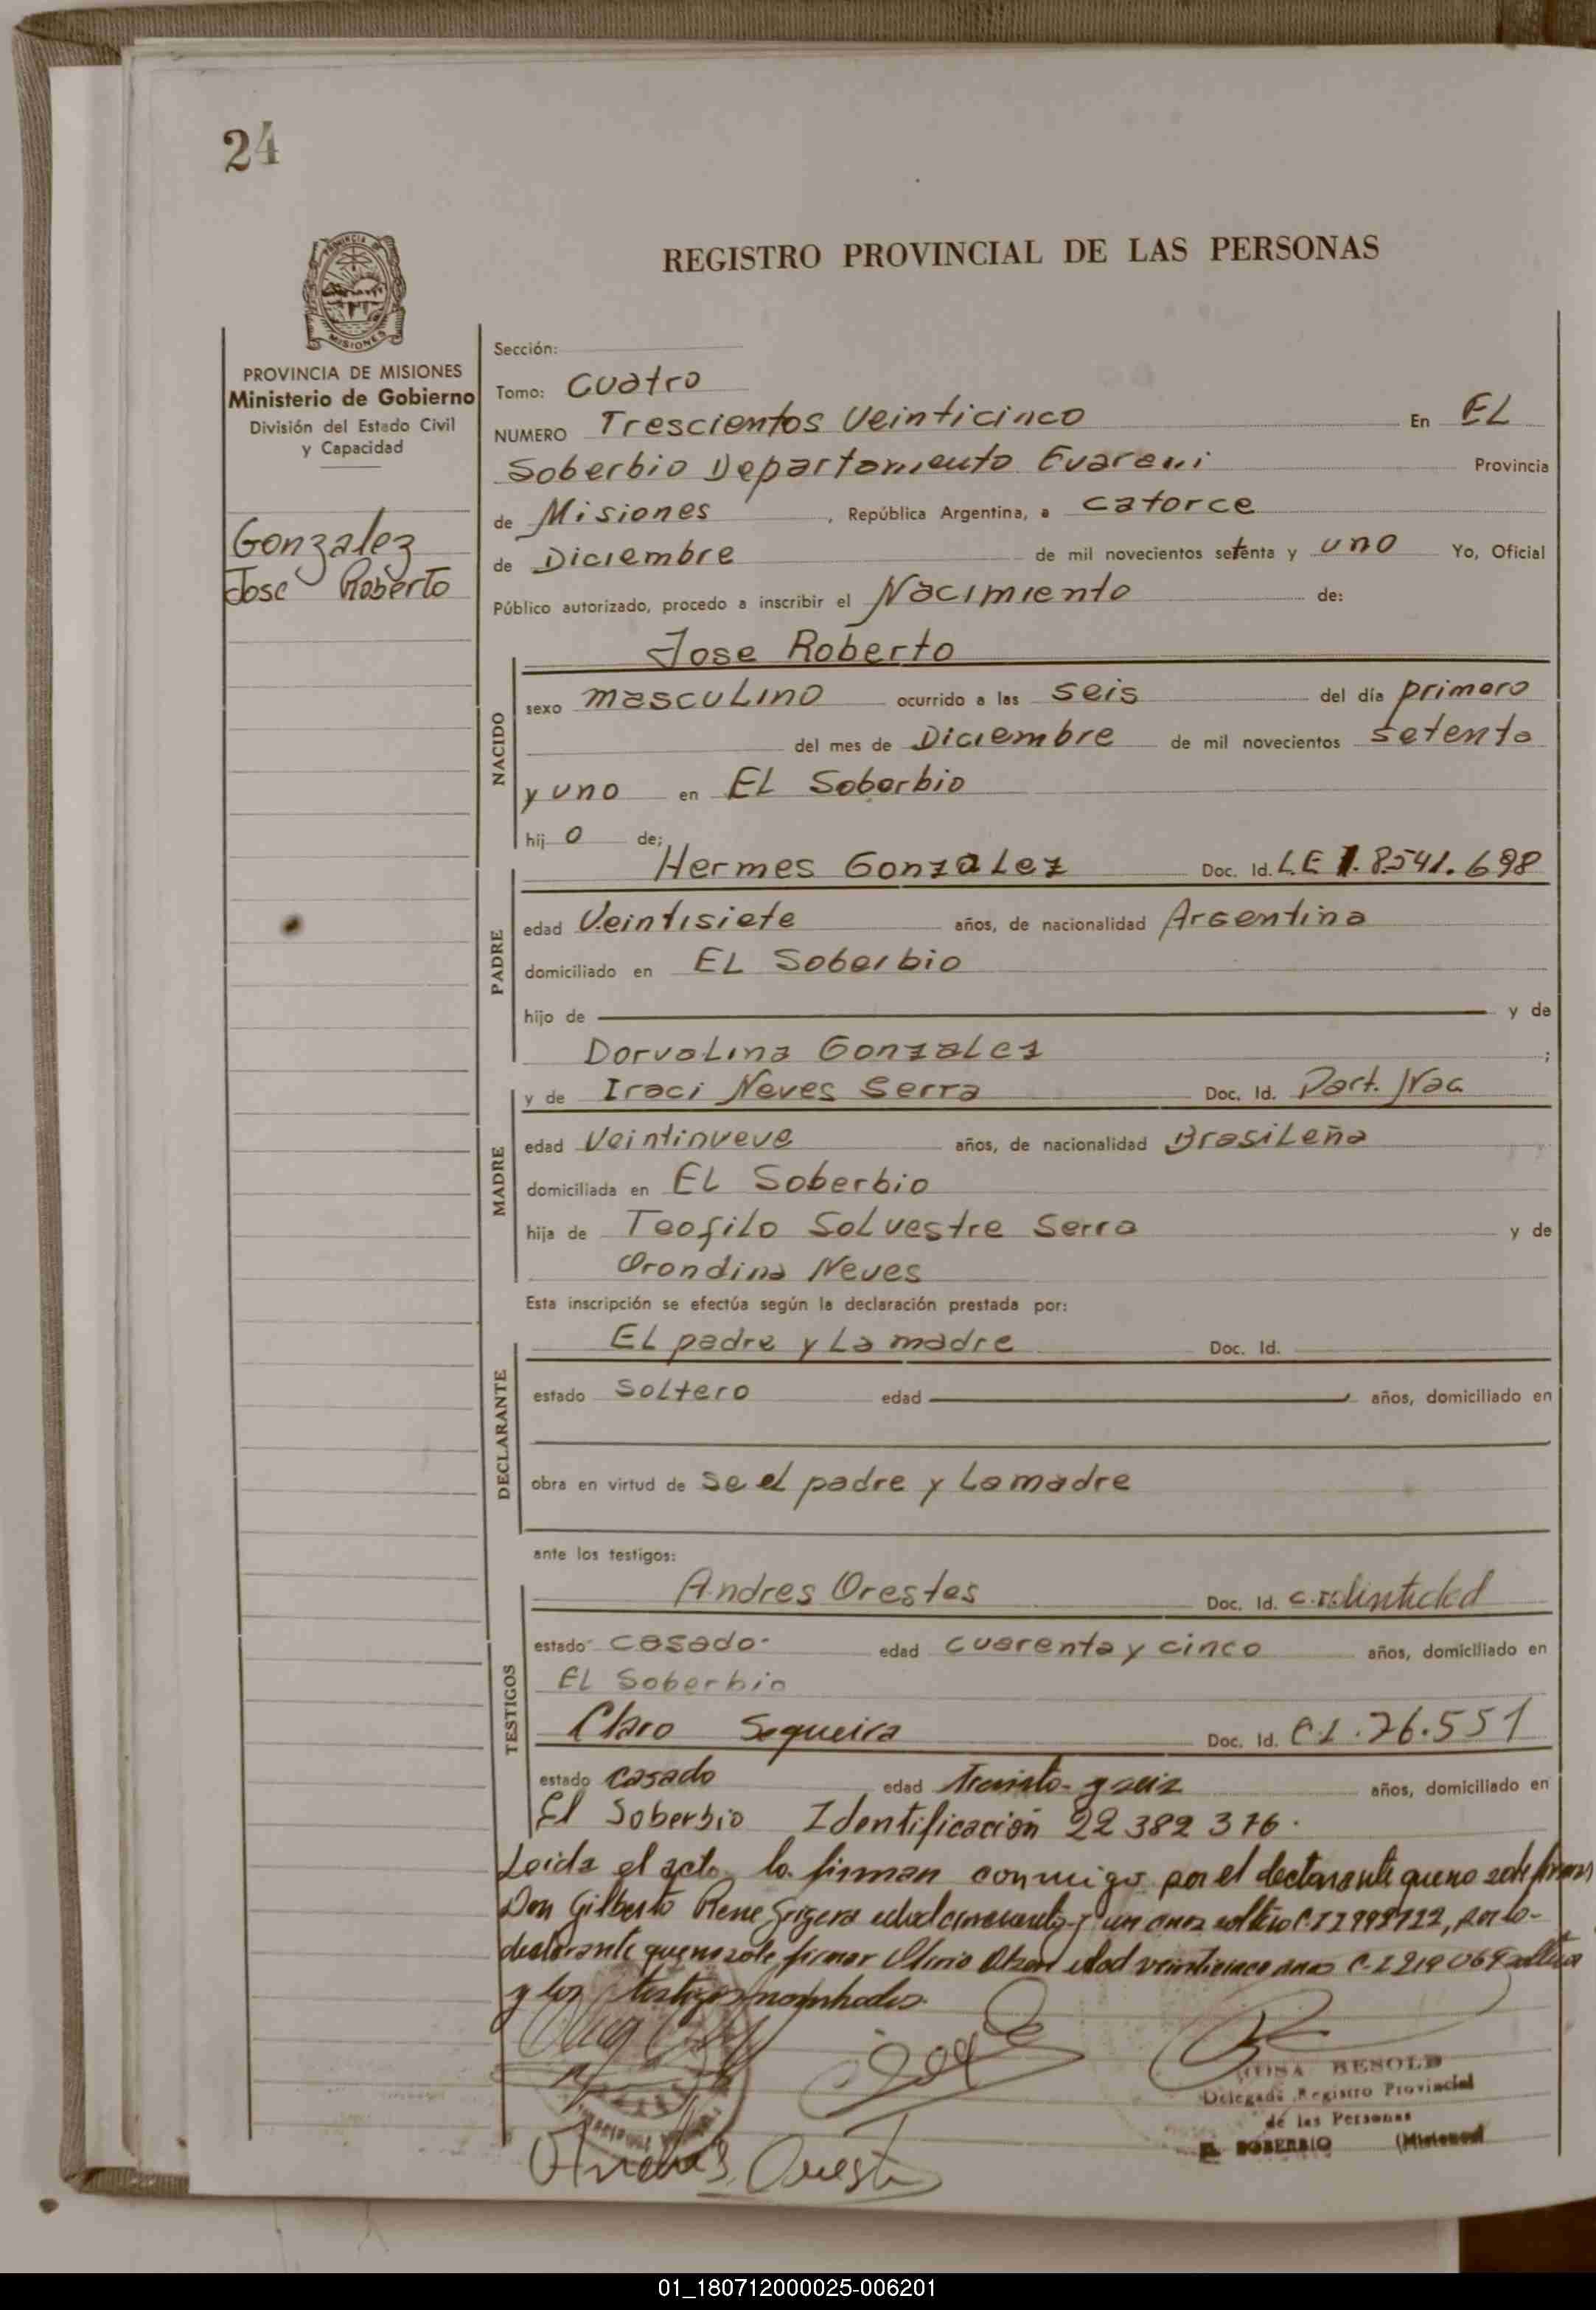 24
REGISTRO PROVINCIAL DE LAS PERSONAS
PROVINCIA DE MISIONES
MISIONES
PROVINCIA DE MISIONES
Ministerio de Gobierno
División del Estado Civil
y Capacidad
Gonzalez
Jose Roberto
Sección:
Tomo: Cuatro
NUMERO Trescientos Veinticinco En EL
Soberbio Departamento Guarani Provincia
de Misiones, República Argentina, a catorce
de Diciembre de mil novecientos setenta y uno Yo, Oficial
Público autorizado, procedo a inscribir el Nacimiento de:
Jose Roberto
NACIDO
sexo masculino ocurrido a las seis del día primero
del mes de Diciembre de mil novecientos setenta
y uno en EL Soberbio
hijo de;
Hermes Gonzalez Doc. Id. LE 8541.698
PADRE
edad Veintisiete años, de nacionalidad Argentina
domiciliado en EL Soberbio
hijo de y de
Dorvalina Gonzalez ;
y de Iraci Neves Serra Doc. Id. Part. Nac
MADRE
edad Veintinueve años, de nacionalidad Brasileña
domiciliada en EL Soberbio
hija de Teofilo Solvestre Serra y de
Orondina Neves
Esta inscripción se efectúa según la declaración prestada por:
El padre y La madre Doc. Id.
DECLARANTE
estado Soltero edad años, domiciliado en
obra en virtud de se el padre y La madre
ante los testigos:
Andres Orestes Doc. Id.
TESTIGOS
estado casado edad cuarenta y cinco años, domiciliado en
EL Soberbio
Claro Sequeira Doc. Id. C.I. 76.551
estado casado edad y seis años, domiciliado en
El Soberbio Identificación 22 382 376.
Leida el acta la firman conmigo por el declarante que no sabe firmar
Don Gilberto Rene Grigera edad cincuenta y un anos soltero C.I por la
declarante que no sabe firmar edad veinticinco anos C.I
y los testigos nombrados.
Andres Orestes
ROSA BESOLD
Delegada Registro Provincial
de las Personas
EL SOBERBIO (Misiones)
01_180712000025-006201